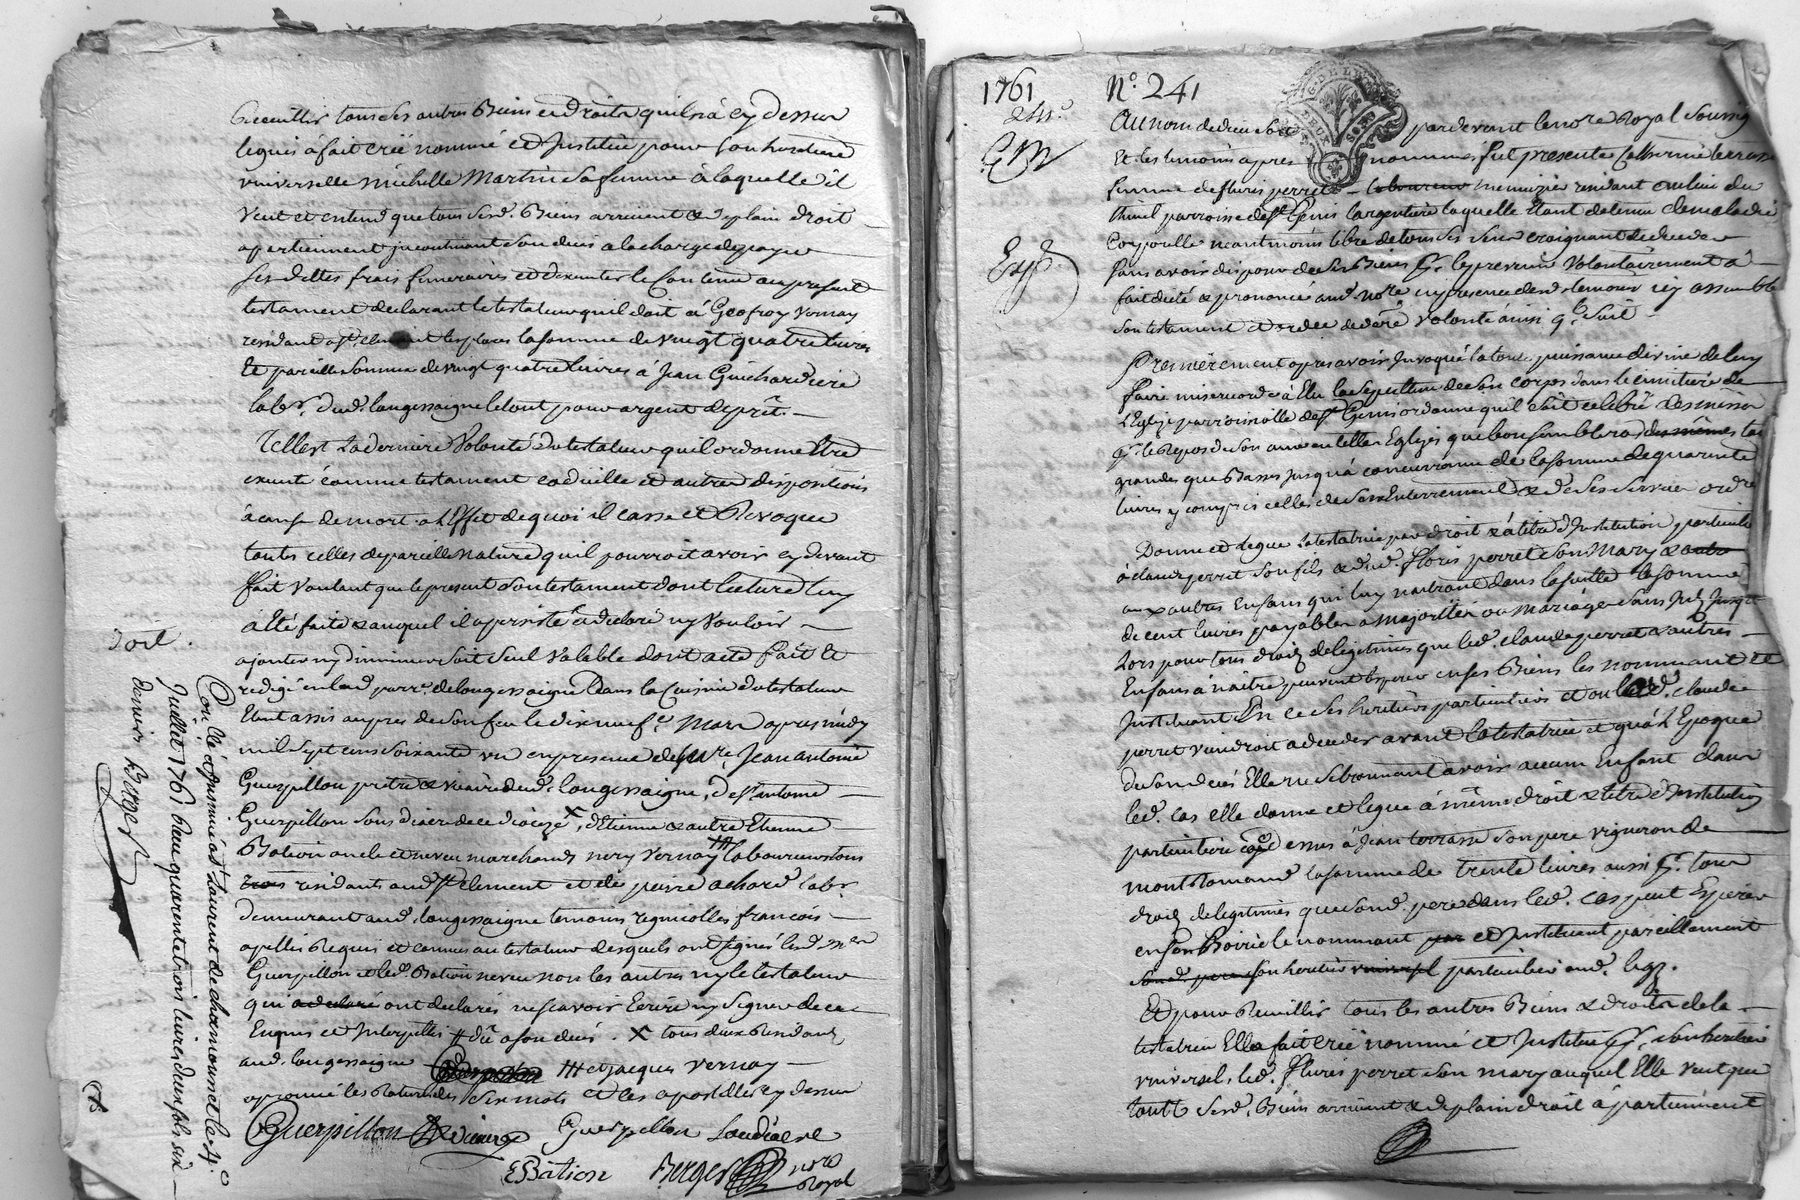 Recueillir tous ses autres Biens et Droits qu'il n'a cy dessus
legués á fait créé nommé et Institué pour son heritiere
universelle michelle Martin Sa femme à laquelle il
veut et entend que tous Sesd. Biens arrivent & de plain droit
apartiennent jncontinant Son deces a la charge de payer
Ses dettes frais funeraires et dexecuter le Contenu au present
testament declarant le testateur quil doit à Geofroy vernay
residant a st. clement les places la somme de vingt quatre livres
Et pareille Somme de vingt quatre livres à Jean Guichard
labr. dud. longessaigne le tout pour argent de prêt. —
Telle est La derniere Volonté du testateur quil ordonne Etre
executé comme testament codicille et autres dispositions
à cause de mort. a l'Effet de quoi il casse et Revoque
toutes celles de pareille nature quil pourroit avoir cy devant
fait voulant que le present Son testament dont lecture luy
à été faite & auquel il a persisté & declaré ny vouloir —
ajouter ny diminuer Soit Seul Valable dont acte fait et
redigé en lad. parr. de longessaigne Dans la Cuisine du testateur
Etant assis aupres de Son feu le dix neufe. Mars apres midy
mil sept cens soixante un en presence de Mre. Jean antoine
Guerpillon pretre & vicaire dud. longessaigne, de sr. antoine
Guerpillon Sous diacre de ce dioceze X, d'Etienne & autre Etienne
Bation oncle et neveu marchands nery vernay ### laboureurs tous
trois residants aud. st. clement et de pierre achard labr.
demeurant aud. longessaigne temoins regnicolles françois —
apellés Requis et connus au testateur desquels ont signé lesd. srs.
Guerpillon et led. Bation neveu non les autres ny le testateur
qui a declaré ont declarés ne scavoir Ecrire ny Signer de ce
Enquis et Interpellés # dû a son deces. X tous deux Residants
aud. longessaigne ### et jacques vernay —
aprouvé les Ratures des Six mots et les apostilles cy dessus
Guerpillon vicaire Guerpillon Soudiacre
E Bâtion Berger nore Royal
doit.
Con.lé & insinué a St. Laurent de chamousset le 4e.
Juillet 1761 Reçu quarente trois livres deux sols six
deniers Berger
1761 N.o 241
2 su.
G. DE LYON
DEUX SOLS
Exp.
Au nom de dieu soit par devant le nore Royal Soussig
Et les temoins apres nommés fut presente Catherine terrasse
femme de fluris perret — laboureur menuizier residant au lieu du
thinel parroisse de st. Genis largentiere laquelle Etant detenue de maladie
Corporelle neantmoins libre de tous ses Sens craignant de deceder
Sans avoir disposé de Ses Biens pr. le prevenir volontairement a
fait dicté & prononcé aud. nore en presence desd. temoins icy assemblés
Son testament et ordce. de dere. volonté ainsi q. Suit —
Premierement apres avoir Invoqué la toute puissance divine de luy
faire misericorde a Elu la Sepulture de Son corps dans le cimitiere de
l'Eglize parroissialle de st. Genis ordonne quil Soit celebré des messes
pr. le Repos de Son ame en telles Eglizes que bon semblera des mêmes tant
grandes que Basses jusqu'à concurrance de la Somme de quarante
livres y compris celles de Son Enterrement & de Ses Services ordres
Donne et legue la testatrice par droit & à titre d'Institution particuliere
à claude perret Son fils & dud. Floris perret Son Mary & autre
aux autres Enfans qui luy naitront dans la suitte la somme
de cent livres payable a Majorité ou Mariage Sans Int. jusqu'à
lors pour tous droits de legitimes que led. claude perret & autres —
Enfans á naitre peuvent Esperer en Ses Biens les nommant et
Instituant En ce Ses heritiers particuliers et ou led. claude
perret viendroit a deceder avant la testatrice et qu'á l'Epoque
de Son deces Elle ne se trouvant avoir aucun Enfant dans
led. cas elle donne et legue á même droit & titre d'Institution
particuliere que dessus á Jean terrasse Son pere vigneron de
montromand la somme de trente livres aussi pr. tous
droits de legitimes que Sond. pere dans led. cas peut Esperer
en Son Hoirie le nommant par et Instituant pareillement
Sond. pere Son heritier universel particulier aud. legs.
Et pour Recueillir tous les autres Biens & droits de la —
testatrice Elle a fait créé nommé et Institué pr. Son heritier
universel, led. Fluris perret Son mary auquel Elle veut que
tout Sesd. Biens arrivent & de plain droit á partiennent